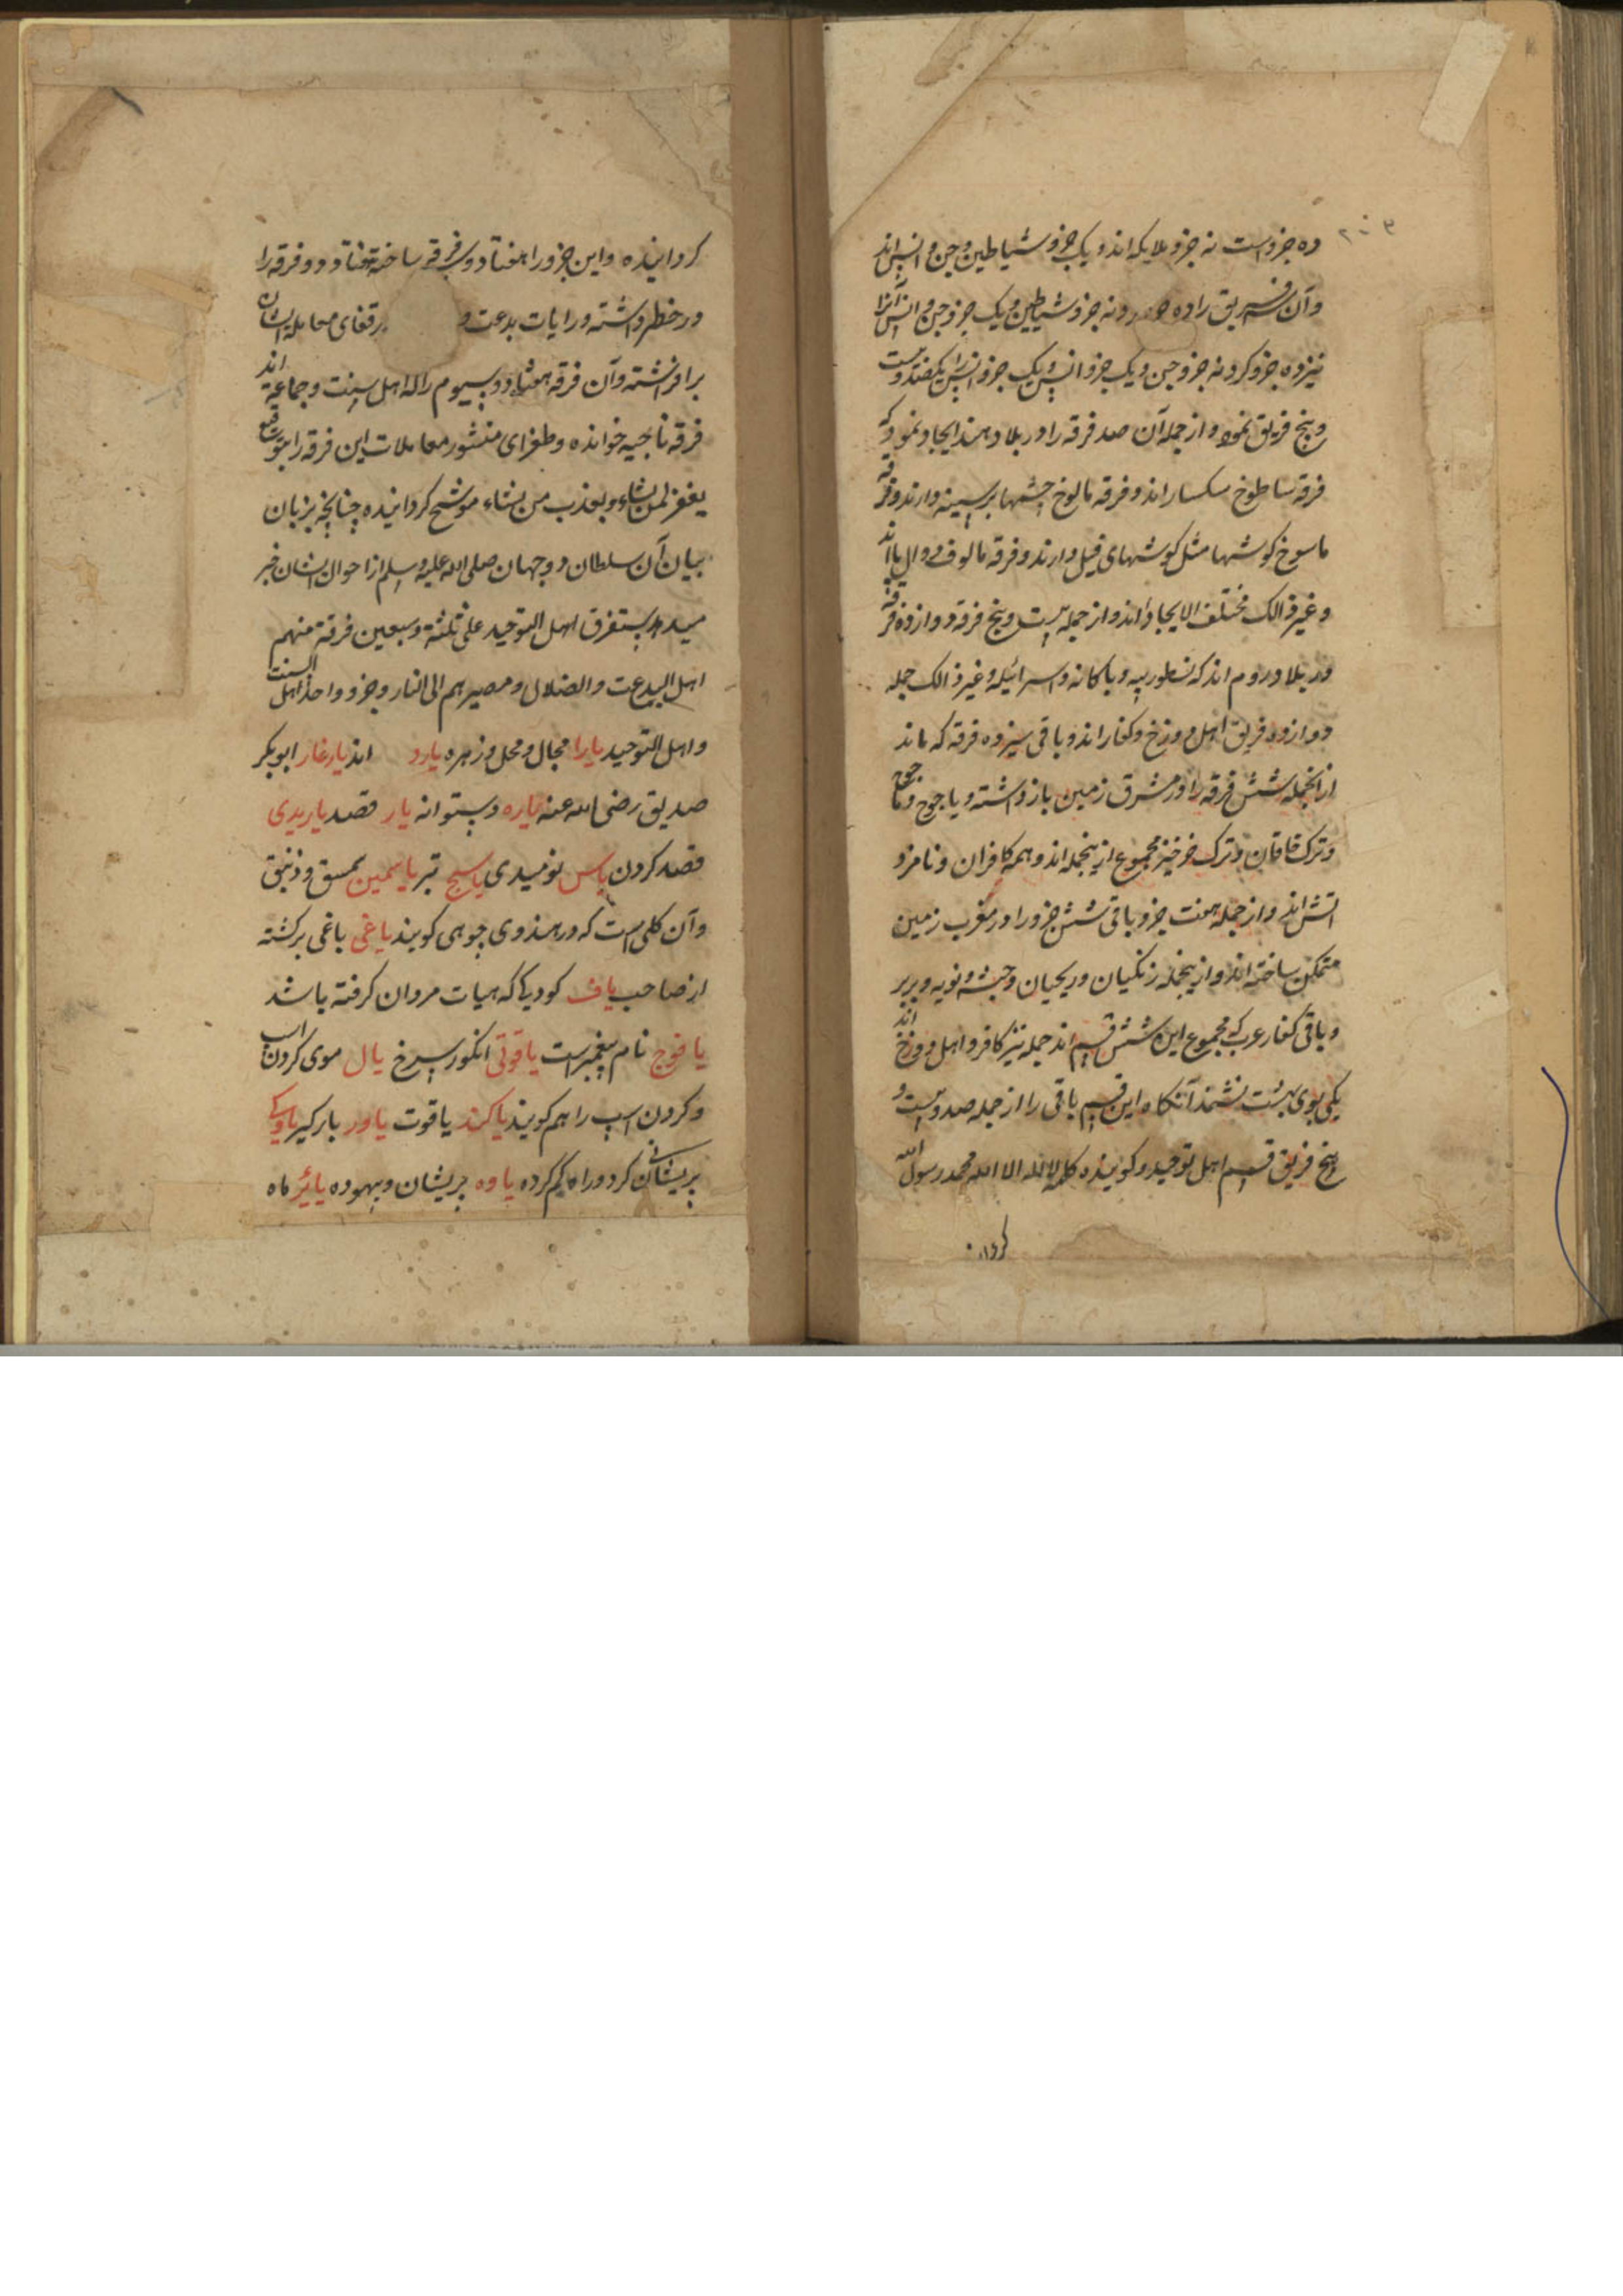 ده جزو است نه جزو ملایکه اند و یک جزو شیاطین و جن و انس اند
وآن فریق را ده جزو کرد ونه جزو شیاطین و یک جزو جن و انس آنرا
نیز ده جزو کرد نه جزو جن و یک جزو انس و یک جزو انس را یکصد و بیست
و پنج فریق نمود و از جمله آن صد فرقه را در بلاد هند ایجاد نمود که
فرقه ساطوخ سکسار اند و فرقه مالوخ چشمها بر سینه دارند و فرقه
ماسوخ کوشها مثل کوشهای فیل دارند و فرقه مالوف دوال پا اند
و غیر ذالک مختلف الایجاد اند و از جمله بیست و پنج فرقه دوازده فرقه
در بلاد روم اند که نسطوریه و باکانه و اسرائیله و غیر ذالک جمله
دوازده فریق اهل دوزخ و کفار اند و باقی سیزده فرقه که ماند
ازانجمله شش فرقه را در مشرق زمین باز داشته و یاجوج و ماجوج
و ترک خاقان و ترک خرخیز مجموع ازینجمله اند و همه کافران و نامزد
اتش اند و از جمله هفت جزو باقی شش جزو را در مغرب زمین
متمکن ساخته اند و ازینجمله زنکیان و ریحیان و حبشه و نوبه و بربر
و باقی کفار عرب که مجموع این شش قسم اند جمله نیز کافر و اهل دوزخ اند
یکی بوی بهشت نشمند آنکاه این قسم باقی را از جمله صد و بیست و
پنج فریق قسم اهل توحید و کوینده کلمه لا اله الا الله محمد رسول الله
کردا
کردانیده و این جزو را هفتاد و سه فرقه ساخته هفتاد و دو فرقه را
در خطر داشته و رایات بدعت و برقفای معامله ایشان
برافراشته وآن فرقه هفتاد و سیوم را که اهل سنت و جماعة اند
فرقه ناجیه خوانده و طغرای منشور معاملات این فرقه را بتوقیع
یغفر لمن یشاء و یعذب من یشاء موشح کردانیده چنانچه بزبان
بیان آن سلطان دو جهان صلی الله علیه وسلم از احوال ایشان خبر
میدهد ستفرق اهل التوحید علی ثلثة وسبعین فرقة منهم
اهل البدعت والضلال ومصیرهم الی النار وجزو واحد اهل السنت
واهل التوحید یارا مجال و محل و زهره یارد اند یارغار ابوبکر
صدیق رضی الله عنه یاره دستوانه یار قصد یاریدی
قصد کردن یاس نومیدی یاسج تبر یاسمین سمسق و زنبق
وآن کلی است که در هندوی جوهی کویند یاغی باغی برکشته
از صاحب یاف کودیا که هیات مردان کرفته باشد
یافوج نام پیغمبر است یاقوتی انکور سرخ یال موی کردن اسب
و کردن اسپ را هم کویند یاکند یاقوت یاور بارکیر یاوکی
پریشان کرد و راه کم کرده یاوه پریشان و بیهوده یائیز ماه